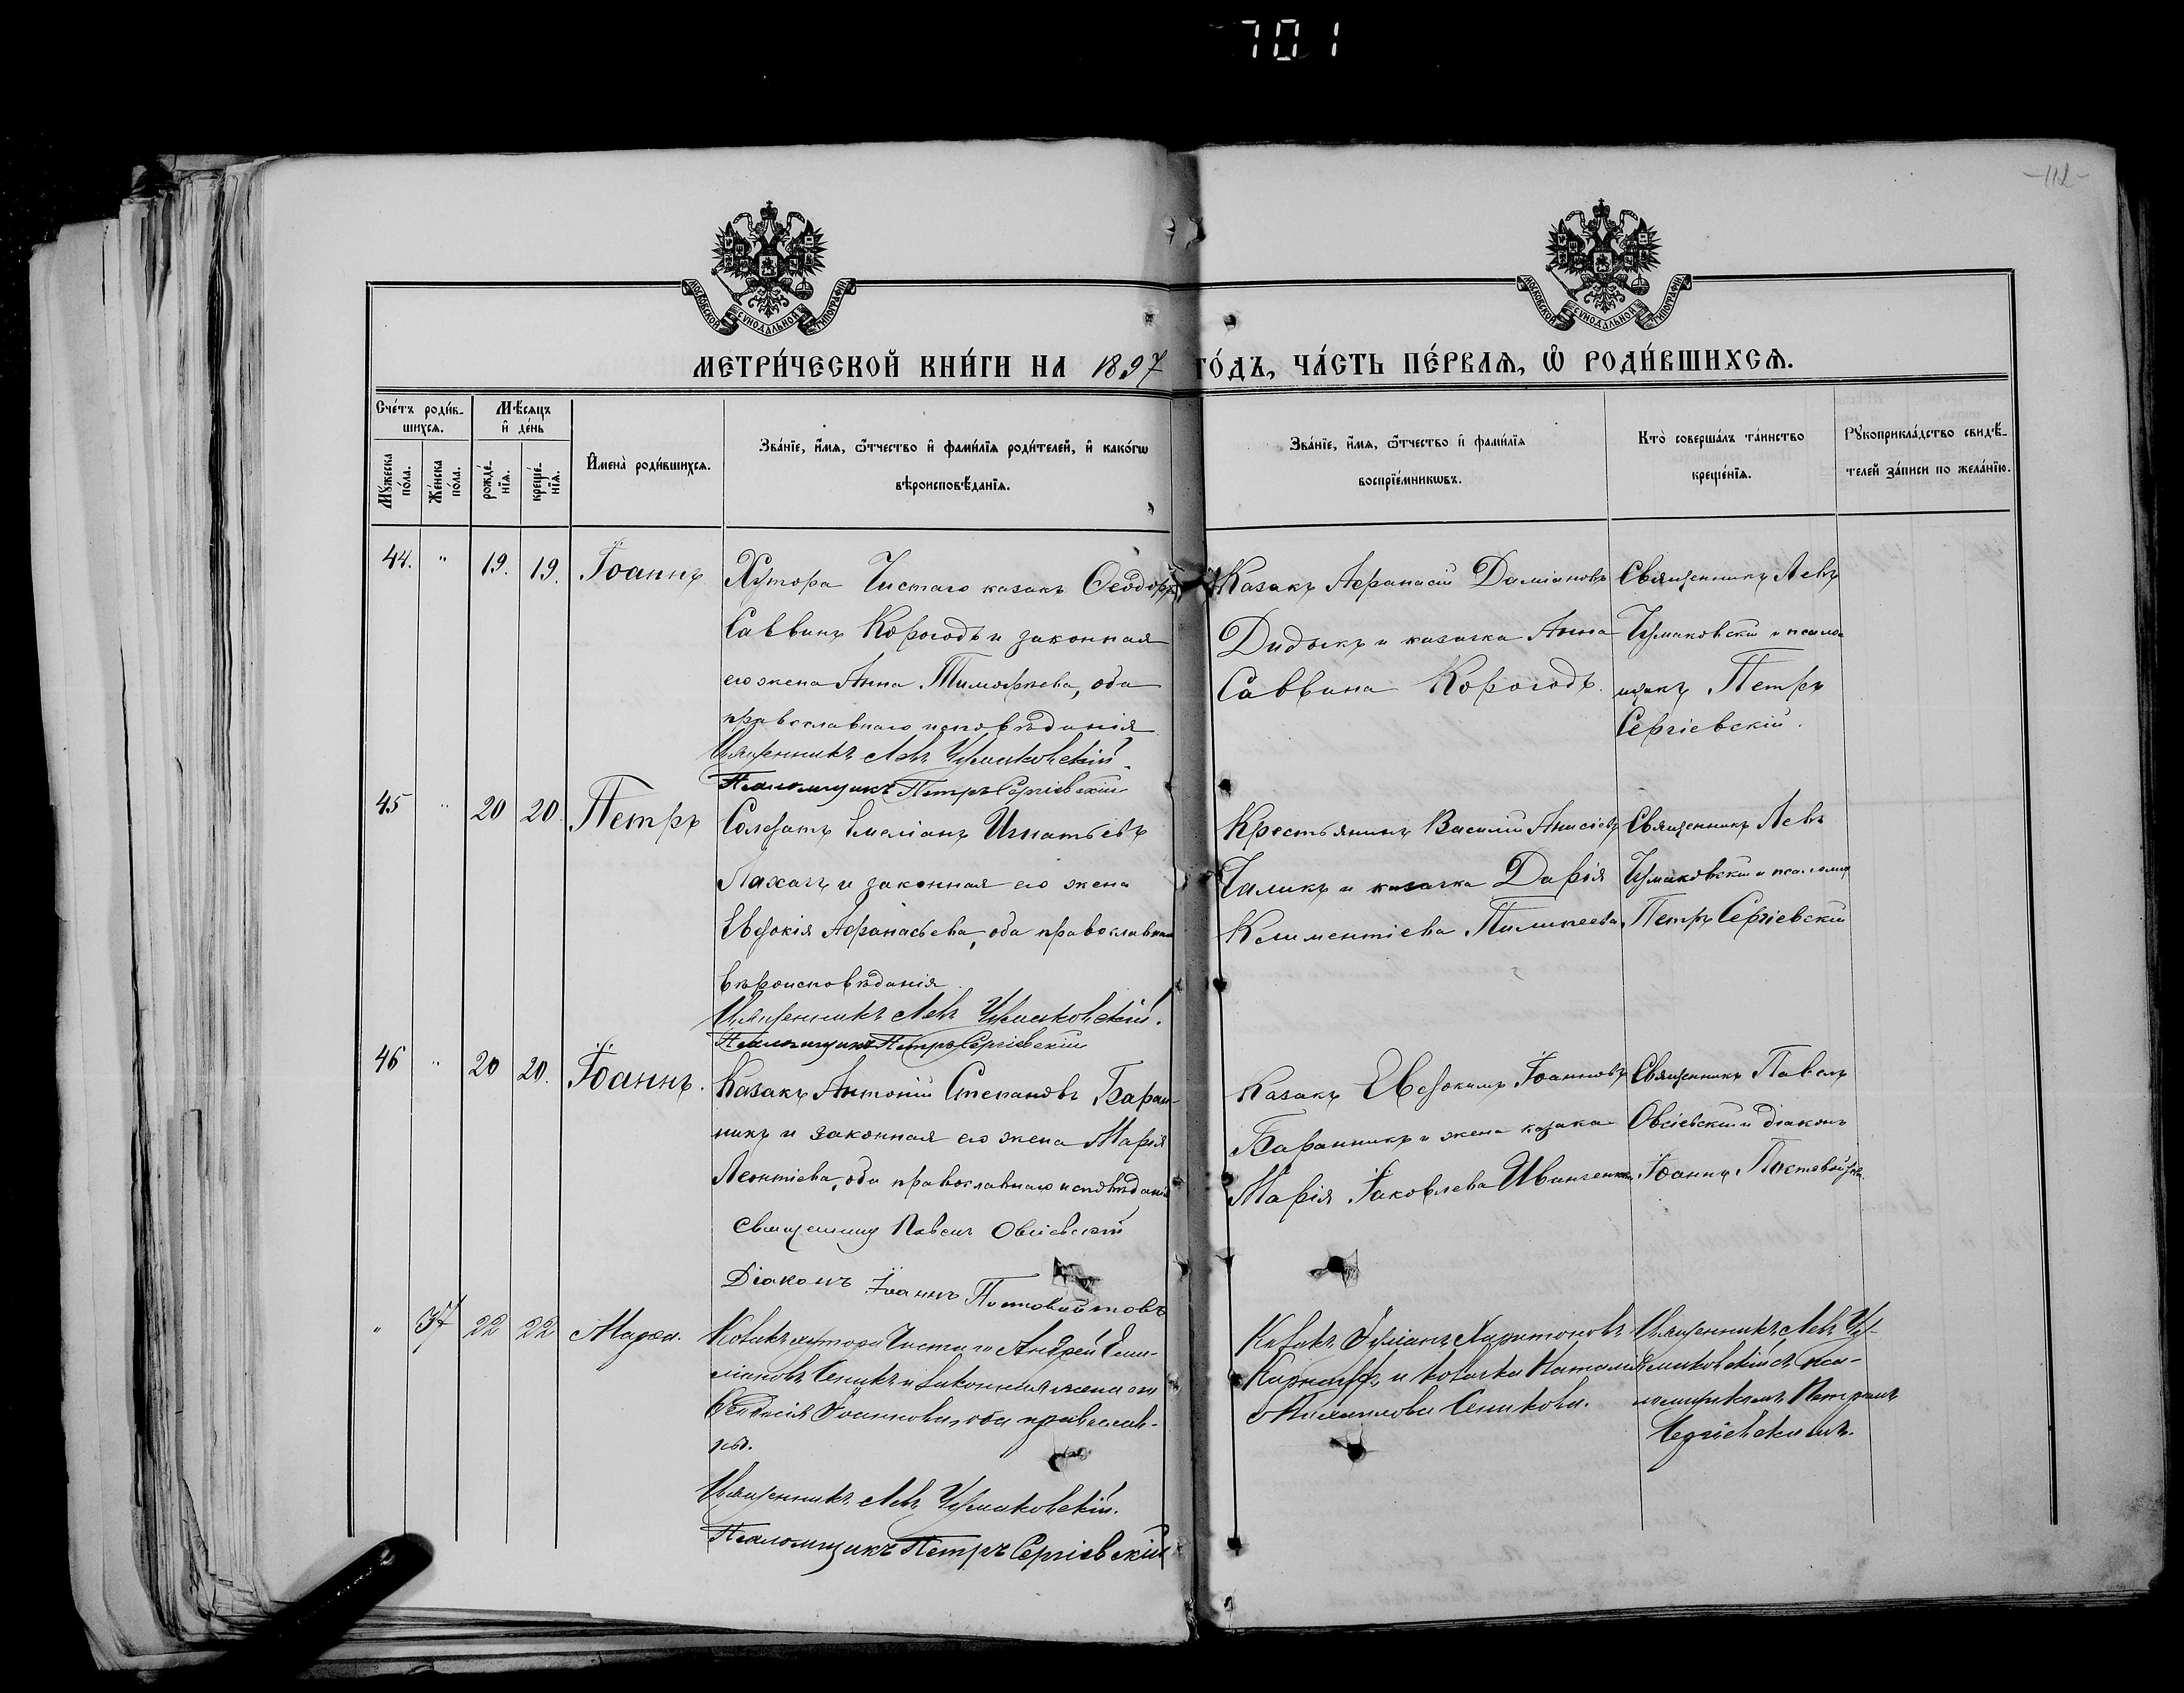 701
-112-
МОСКОВСКОЙ СѴНОДАЛЬНОЙ ТИПОГРАФІИ
МОСКОВСКОЙ СѴНОДАЛЬНОЙ ТИПОГРАФІИ
МЕТРИ́ЧЕСКОЙ КНИ́ГИ НА 1897 ГО́ДЪ, ЧА́СТЬ ПЕ́РВАѦ, Ѡ РОДИ́ВШИХСѦ.
Сче́тъ роди́в-
шихсѧ.
Мꙋ́жеска по́ла.
Же́нска по́ла.
Мѣ́сѧцъ и҆ де́нь
рожде́-
нїѧ.
креще́-
нїѧ.
И҆мена̀ роди́вшихсѧ.
Зва́нїе, и҆́мѧ, ѻ҆́тчество и҆ фами́лїѧ роди́телей, и҆ како́гѡ
вѣроисповѣ́данїѧ.
Зва́нїе, и҆́мѧ, ѻ҆́тчество и҆ фами́лїѧ
воспрїе́мникѡвъ.
Кто̀ соверша́лъ та́инство
креще́нїѧ.
Рꙋкоприкла́дство свидѣ́-
телей за́писи по жела́нїю.
44. " 19. 19. Іоаннъ
Хутора Чистаго казакъ Ѳеодоръ
Саввинъ Корогодъ и законная
его жена Анна Тимофѣева, оба
православнаго исповѣданія
Священникъ Левъ Чумаковскій.
Псаломщикъ Петръ Сергіевскій
Казакъ Афанасій Даміановъ
Дидыкъ и казачка Анна
Саввина Корогодъ.
Священникъ Левъ
Чумаковскій и псалом
щикъ Петръ
Сергіевскій.
45 " 20 20. Петръ
Солдатъ Емеліанъ Игнатьевъ
Лахачъ и законная его жена
Евдокія Афанасьева, оба православнаго
вѣроисповѣданія
Священникъ Левъ Чумаковскій.
Псаломщикъ Петръ Сергіевскій
Крестьянинъ Василій Анисіевъ
Чаликъ и казачка Дарія
Климентіева
Священникъ Левъ
Чумаковскій и псаломщ
Петръ Сергіевскій
46 " 20 20. Іоаннъ.
Казакъ Антоній Степановъ Баран-
никъ и законная его жена Марія
Леонтіева, оба православнаго исповѣданія
Священникъ Павелъ Овсіевскій
Діаконъ Іоаннъ Постовойтовъ
Казакъ Евдокимъ Іоанновъ
Баранникъ и жена казака
Марія Іаковлева Иванченкова.
Священникъ Павелъ
Овсіевскій и діаконъ
Іоаннъ Постовойтовъ.
" 37 22 22 Марѳа.
Козакъ хутора Чистаго Андрей Еми-
ліановъ Сеникъ и законная жена его
Ѳеодосія Іоаннова, оба православ-
ные.
Священникъ Левъ Чумаковскій.
Псаломщикъ Петръ Сергіевскій
Козакъ Іуліанъ Харитоновъ
и козачка Наталія
Михаилова Сеникова.
Священникъ Левъ Чу-
маковскій съ пса-
ломщикомъ Петромъ
Сергіевскимъ.